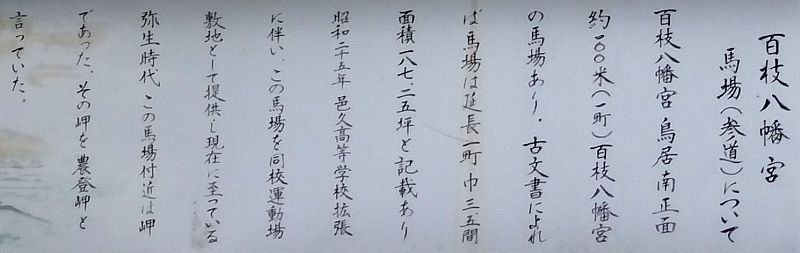 百枝八幡宮
馬場(参道)について
百枝八幡宮 鳥居南正面
約一〇〇米(一町)百枝八幡宮
の馬場あり、古文書によれ
ば馬場は延長一町巾三.五間
面積一八七.二五坪と記載あり
昭和二十五年 邑久高等学校拡張
に伴い、この馬場を同校運動場
敷地として提供し現在に至っている
弥生時代 この馬場付近は岬
であった、その岬を農登岬と
言っていた。